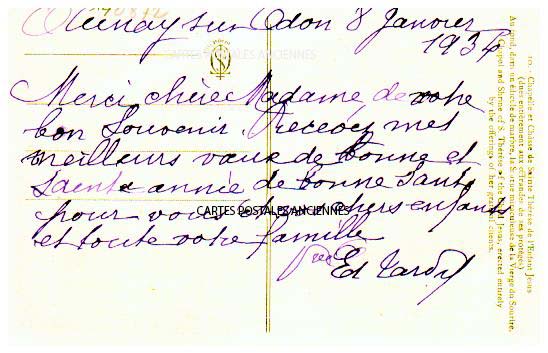 Aunay sur Odon 8 Janvier
1934
Merci chère Madame de votre
bon Souvenir. Recevez mes
meilleurs vœux de bonne et
Sainte année de bonne Santé
pour vous chers enfants
et toute votre famille
Ed Tardif
CARTES POSTALES ANCIENNES
CARTES POSTALES ANCIENNES
10. Chapelle et Châsse de Sainte Thérèse de l'Enfant Jésus
(dues entièrement aux offrandes de ses protégés)
Au fond, dans une étoile de marbre, la Statue miraculeuse de la Vierge du Sourire.
Chapel and Shrine of S. Thérèse of the Child Jesus, erected entirely
by the offerings of her grateful clients.